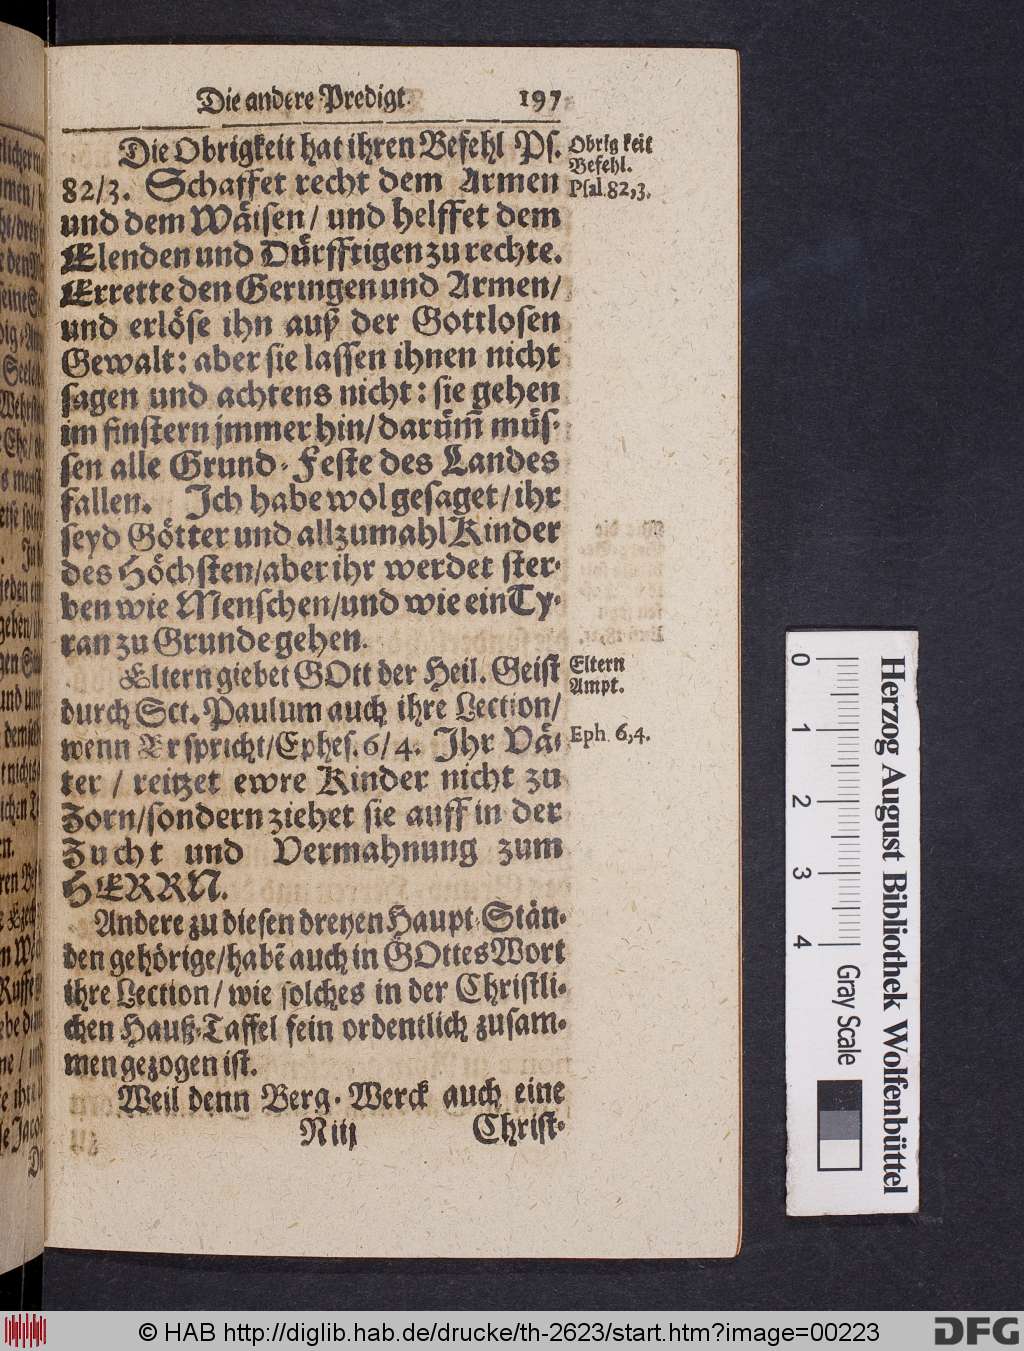 Die andere Predigt. 197
Die Obrigkeit hat ihren Befehl Ps.
82/3. Schaffet recht dem Armen
und dem Wäisen/ und helffet dem
Elenden und Dürfftigen zu rechte.
Errette den Geringen und Armen/
und erlöse ihn auß der Gottlosen
Gewalt: aber sie lassen ihnen nicht
sagen und achtens nicht: sie gehen
im finstern jmmer hin/ darüm̃ müs-
sen alle Grund-Feste des Landes
fallen. Ich habe wol gesaget/ ihr
seyd Götter und allzumahl Kinder
des Höchsten/ aber ihr werdet ster-
ben wie Menschen/ und wie ein Ty-
ran zu Grunde gehen.
Eltern giebet GOtt der Heil. Geist
durch Sct. Paulum auch ihre Lection/
wenn Er spricht/ Ephes. 6/4. Ihr Vä-
ter / reitzet ewre Kinder nicht zu
Zorn/ sondern ziehet sie auff in der
Zucht und Vermahnung zum
HERRN.
Andere zu diesen dreyen Haupt-Stän-
den gehörige/ habẽ auch in GOttes Wort
ihre Lection/ wie solches in der Christli-
chen Hauß-Taffel fein ordentlich zusam-
men gezogen ist.
Weil denn Berg-Werck auch eine
N iij Christ-
Obrigkeit
Befehl.
Psal. 82,3.
Eltern
Ampt.
Eph. 6,4.
0 1 2 3 4
Gray Scale
Herzog August Bibliothek Wolfenbüttel
© HAB http://diglib.hab.de/drucke/th-2623/start.htm?image=00223
DFG